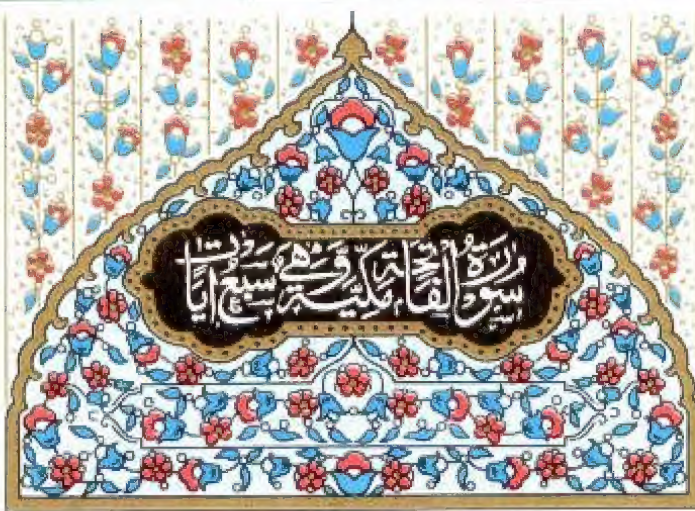 سُوْرَةُ الْفَاتِحَةِ مَكِّيَّةٌ وَّهِيَ سَبْعُ اٰيَاتٍ